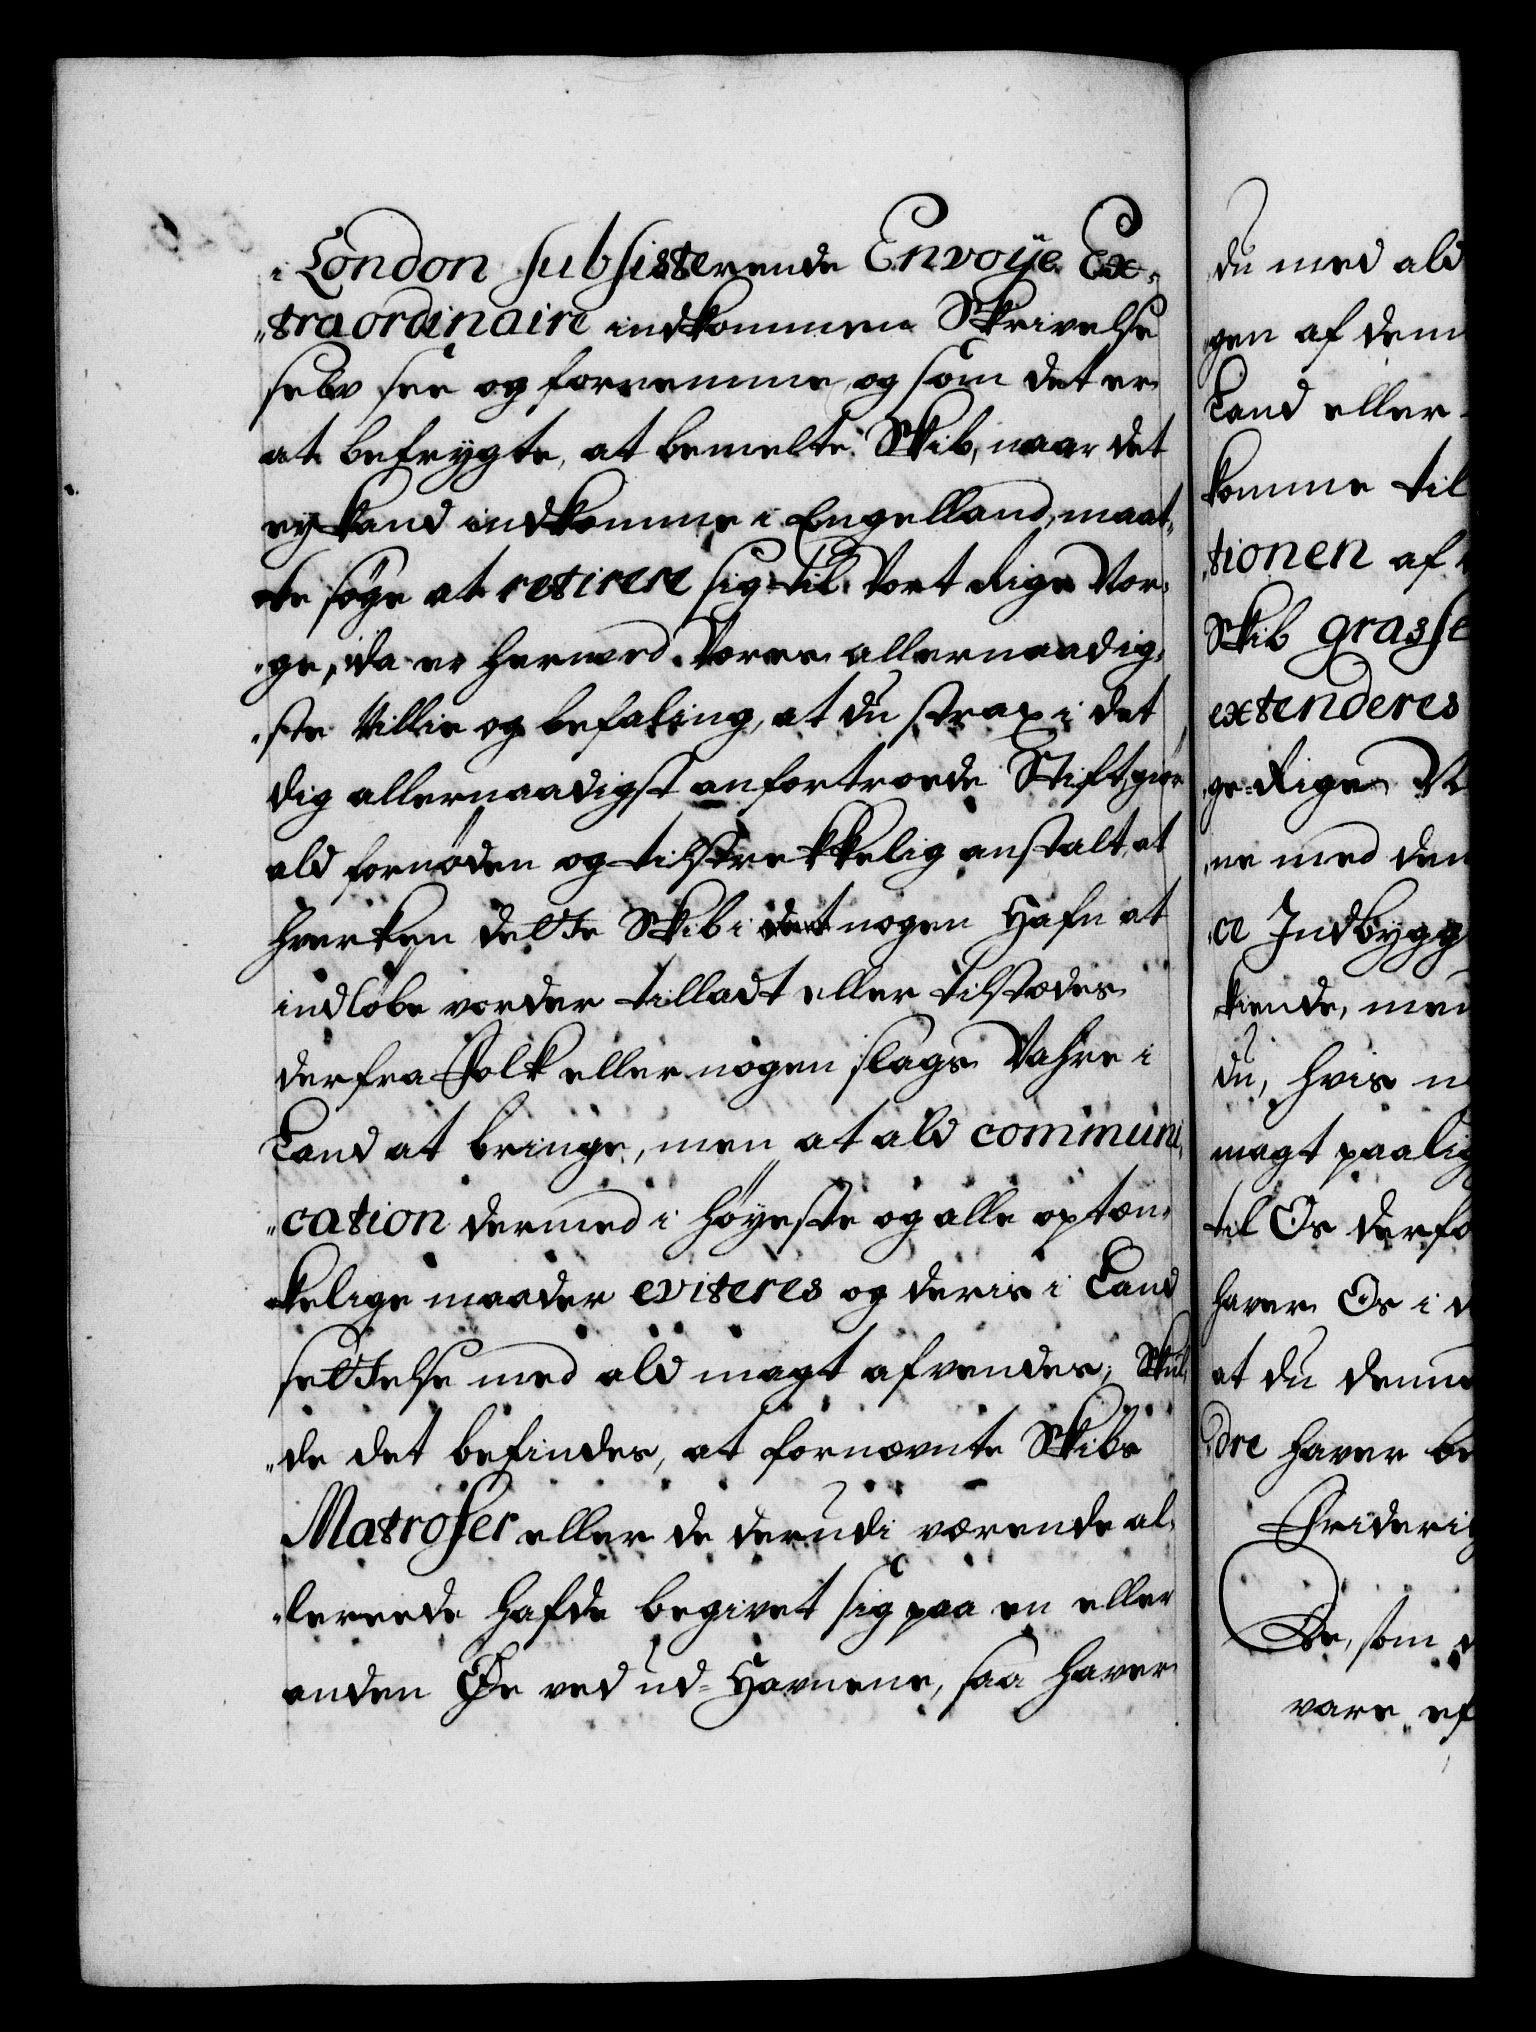 i London subsisterende Envoÿe Ex„
„traordinaire indkommen Skrivelse
selv see og fornemme, og som det er
at befrygte, at bemelte Skib, naar det
ey kand indkomme i Engelland, maat„
te søge at retirere sig til Vort Rige Nor„
„ge, da er hermed Vores allernaadig„
„ste Villie og befaling, at du strax i det
dig allernaadigst anfortroede Stift, giør
ald fornøden og tilstrekkelig anstalt, at
hverken dette Skib i nogen Hafn at
indløbe vorder tilladt eller tilstædes
derfra Folk eller nogen slags Vahre i
Land at bringe, men at ald communi„
„cation dermed i høyeste og alle optæn„
kelige maader eviteres og deris i Land
settelse med ald magt afvendes; Skul„
„de det befindes, at fornævnte Skibs
Matroser eller de derudi værende al„
„lereede hafde begivet sig paa en eller
anden Øe ved ud-Havnene, saa haver
du med ald
gen af dem
Land eller
komme til
„tionen af
Skib grasse
extenderes
ge-Rige
ne med den
ce Indbygg
kiende, men
du, hvis
magt paalig
til Os derfo
haver Os i
at du denne
„dre haver be
Frideric
De, som
vare ef